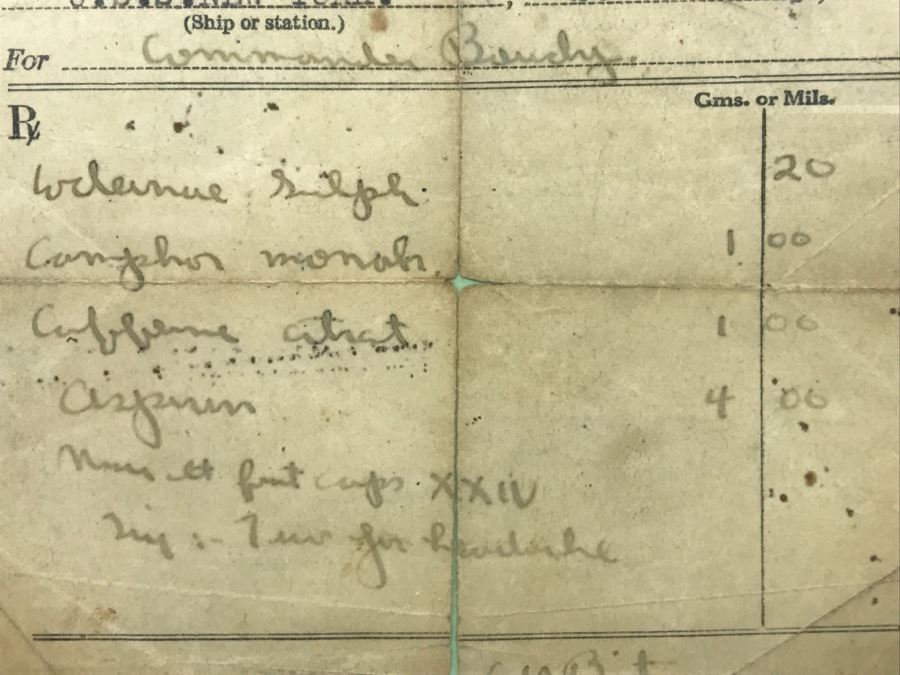 (Ship or station.)
For Commander
Gms. or Mils.
℞
Codeinae Sulph. 20
Camphor monobr. 1 00
Caffeine citrat. 1 00
Aspirin 4 00
et fiat caps XXIV
Sig:- Two for headache